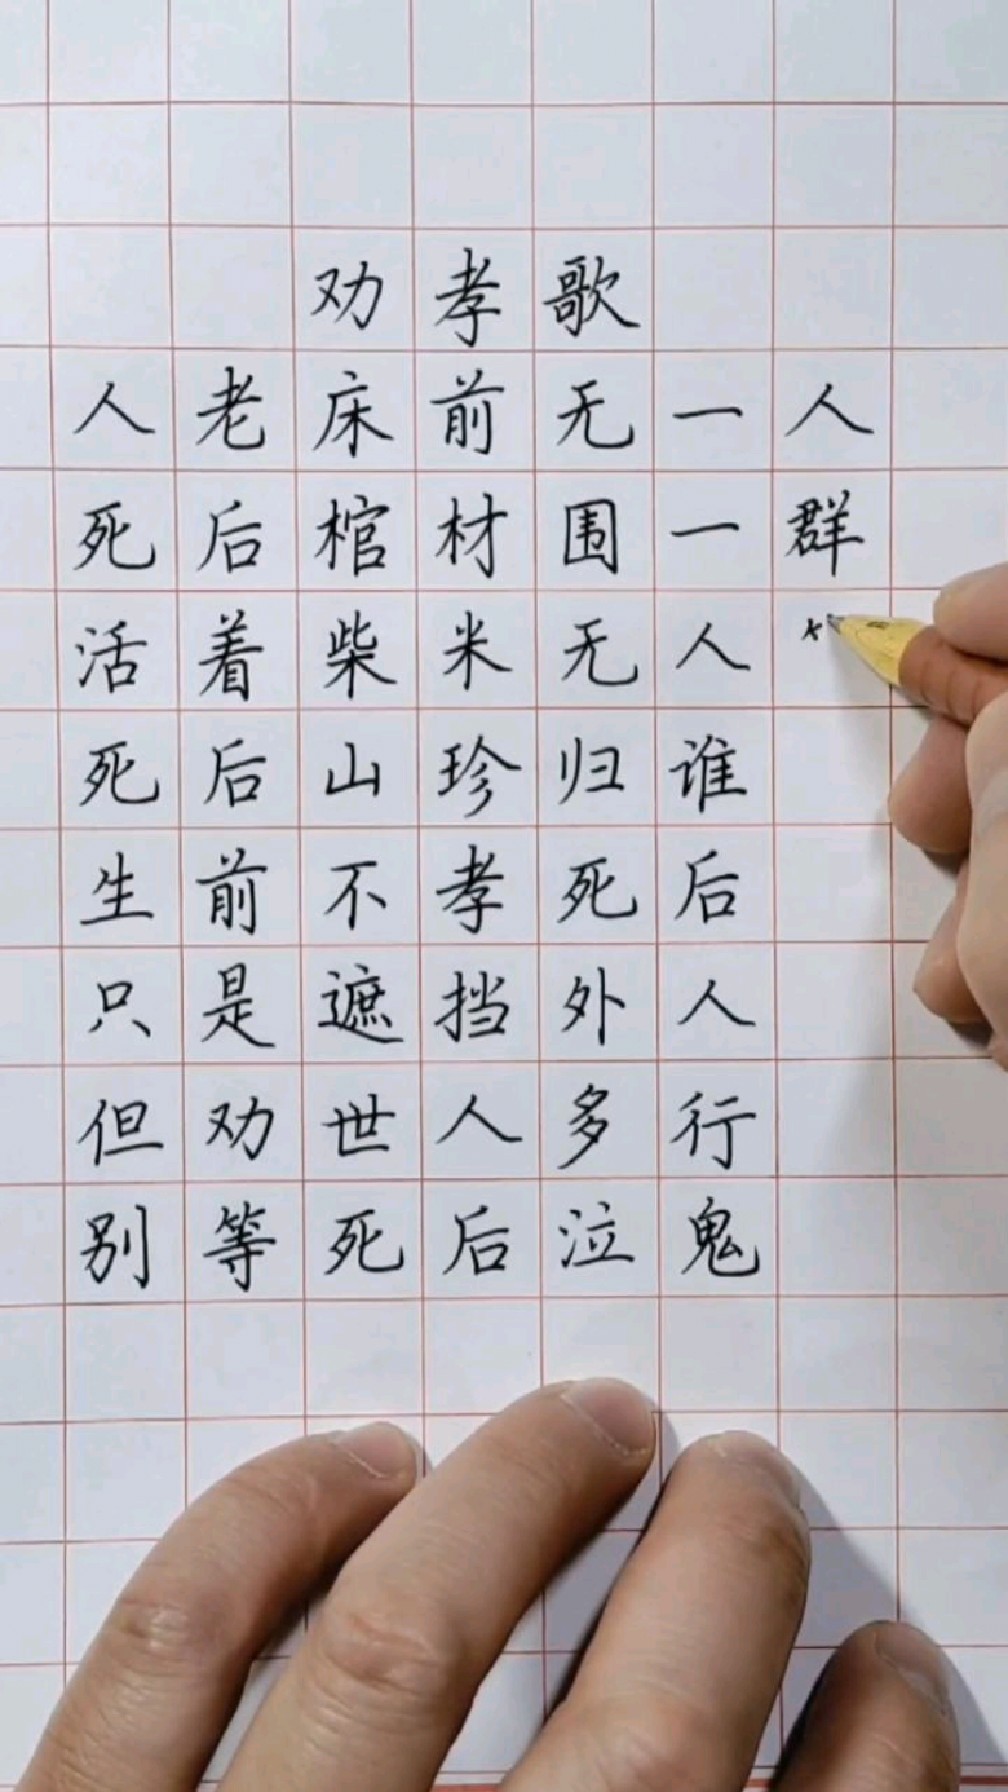 劝孝歌
人老床前无一人
死后棺材围一群
活着柴米无人
死后山珍归谁
生前不孝死后
只是遮挡外人
但劝世人多行
别等死后泣鬼